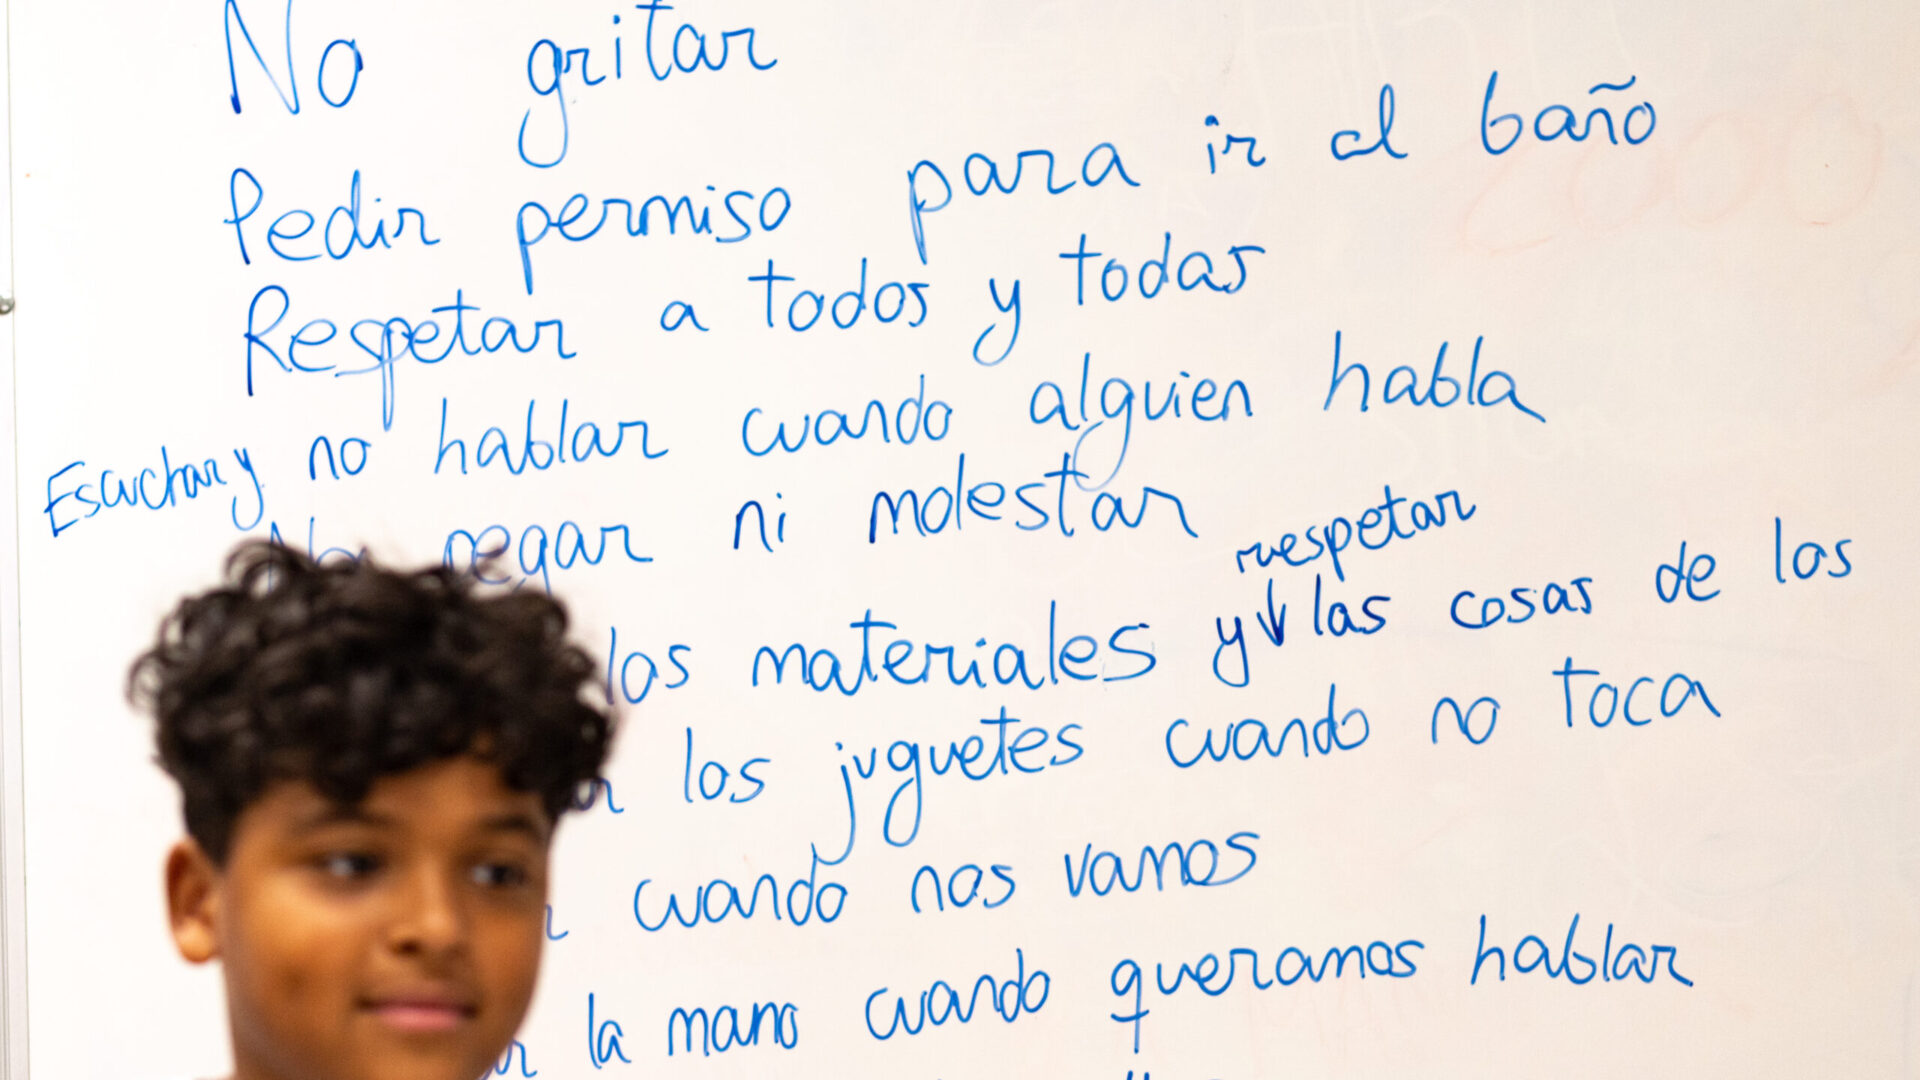 No gritar
Pedir permiso para ir al baño
Respetar a todos y todas
Escuchar y no hablar cuando alguien habla
No pegar ni molestar
respetar
los materiales y las cosas de los
los juguetes cuando no toca
cuando nos vamos
la mano cuando queramos hablar